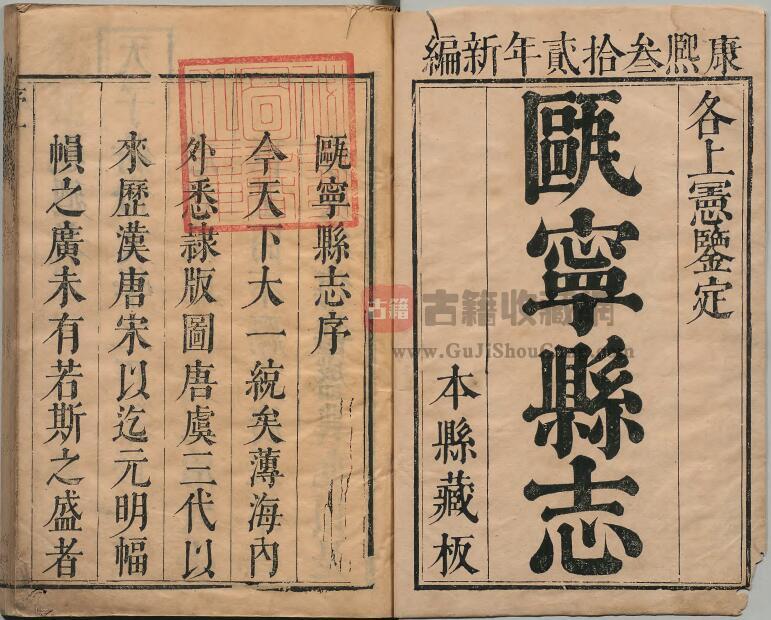 康熙叁拾貳年新編
各上憲鑒定
甌寧縣志
本縣藏板
甌寧縣志序
今天下大一統矣薄海內
外悉隸版圖唐虞三代以
來歷漢唐宋以迄元明幅
幀之廣未有若斯之盛者
序一
古籍
古籍收藏網
www.GuJiShouCang.com